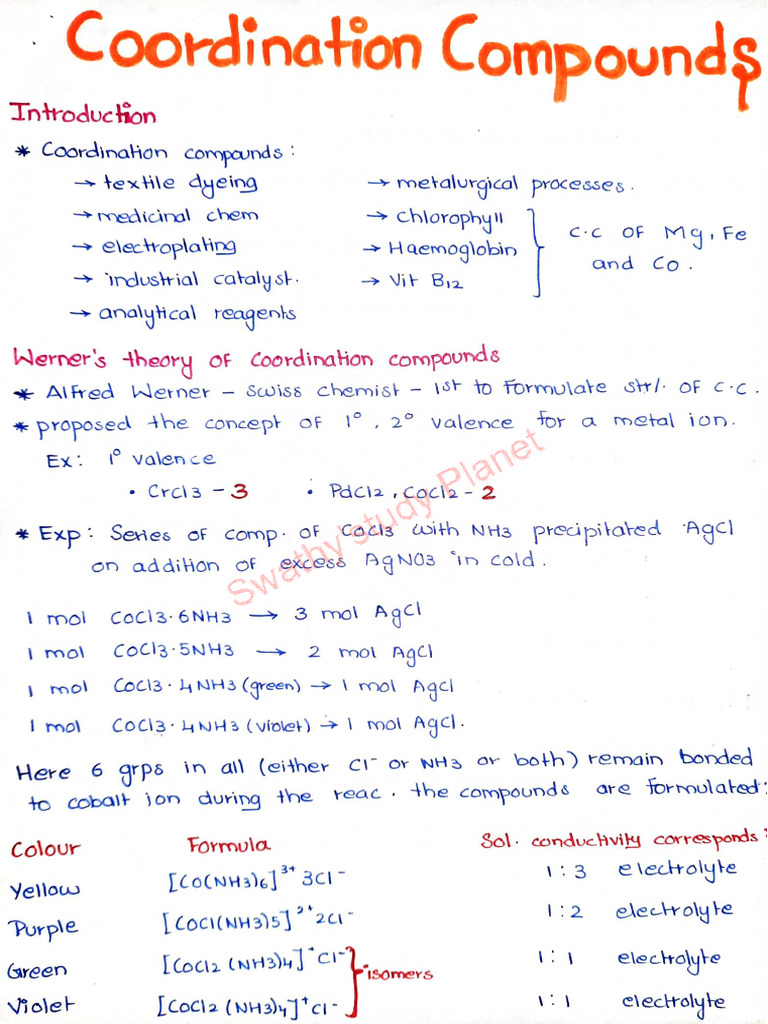 Coordination Compounds
Introduction
* Coordination compounds:
→ textile dyeing → metalurgical processes.
→ medicinal chem → chlorophyll
→ electroplating → Haemoglobin
→ industrial catalyst. → Vit B12
→ analytical reagents
C.C OF Mg, Fe
and Co.
Werner's theory of coordination compounds
* Alfred Werner - swiss chemist - 1st to formulate str/. of C.C.
* proposed the concept of 1°, 2° valence for a metal ion.
Ex: 1° valence
• CrCl3 - 3 • PdCl2, CoCl2 - 2
* Exp: Series of comp. of CoCl3 with NH3 precipitated AgCl
on addition of excess AgNO3 in cold.
1 mol CoCl3·6NH3 → 3 mol AgCl
1 mol CoCl3·5NH3 → 2 mol AgCl
1 mol CoCl3·4NH3 (green) → 1 mol AgCl
1 mol CoCl3·4NH3 (violet) → 1 mol AgCl.
Here 6 grps in all (either Cl⁻ or NH3 or both) remain bonded
to cobalt ion during the reac. the compounds are formulated:
Colour Formula Sol. conductivity corresponds:
Yellow [Co(NH3)6]³⁺ 3Cl⁻ 1:3 electrolyte
Purple [CoCl(NH3)5]²⁺ 2Cl⁻ 1:2 electrolyte
Green [CoCl2(NH3)4]⁺ Cl⁻ 1:1 electrolyte
isomers
Violet [CoCl2(NH3)4]⁺ Cl⁻ 1:1 electrolyte
Swathy'study Planet